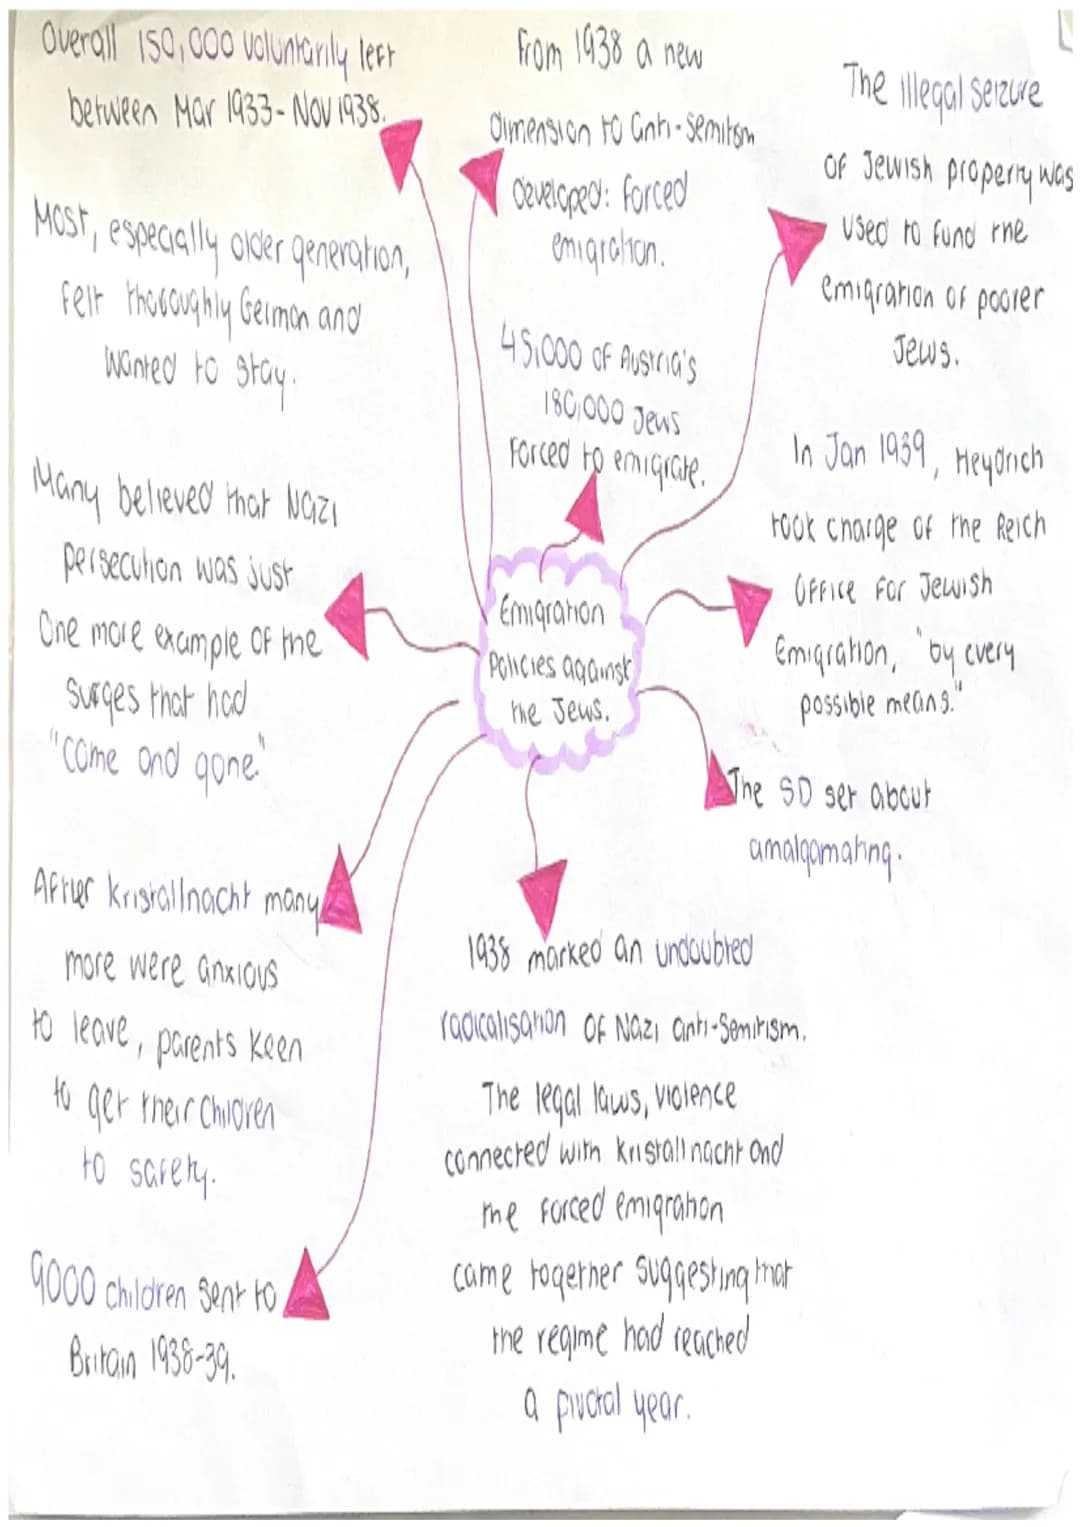 Overall 150,000 voluntarily left
between Mar 1933- Nov 1938.
Most, especially older generation,
felt thoroughly German and
wanted to stay.
Many believed that Nazi
persecution was just
One more example of the
surges that had
"come and gone."
After Kristallnacht many
more were anxious
to leave, parents keen
to get their children
to safety.
9000 children sent to
Britain 1938-39.
From 1938 a new
dimension to anti-semitism
developed: forced
emigration.
45,000 of Austria's
180,000 Jews
Forced to emigrate.
Emigration
Policies against
the Jews.
1938 marked an undoubted
radicalisation of Nazi anti-Semitism.
The legal laws, violence
connected with Kristallnacht and
the forced emigration
came together suggesting that
the regime had reached
a pivotal year.
The illegal seizure
of Jewish property was
used to fund the
emigration of poorer
Jews.
In Jan 1939, Heydrich
took charge of the Reich
Office for Jewish
Emigration, "by every
possible means."
The SD set about
amalgamating.